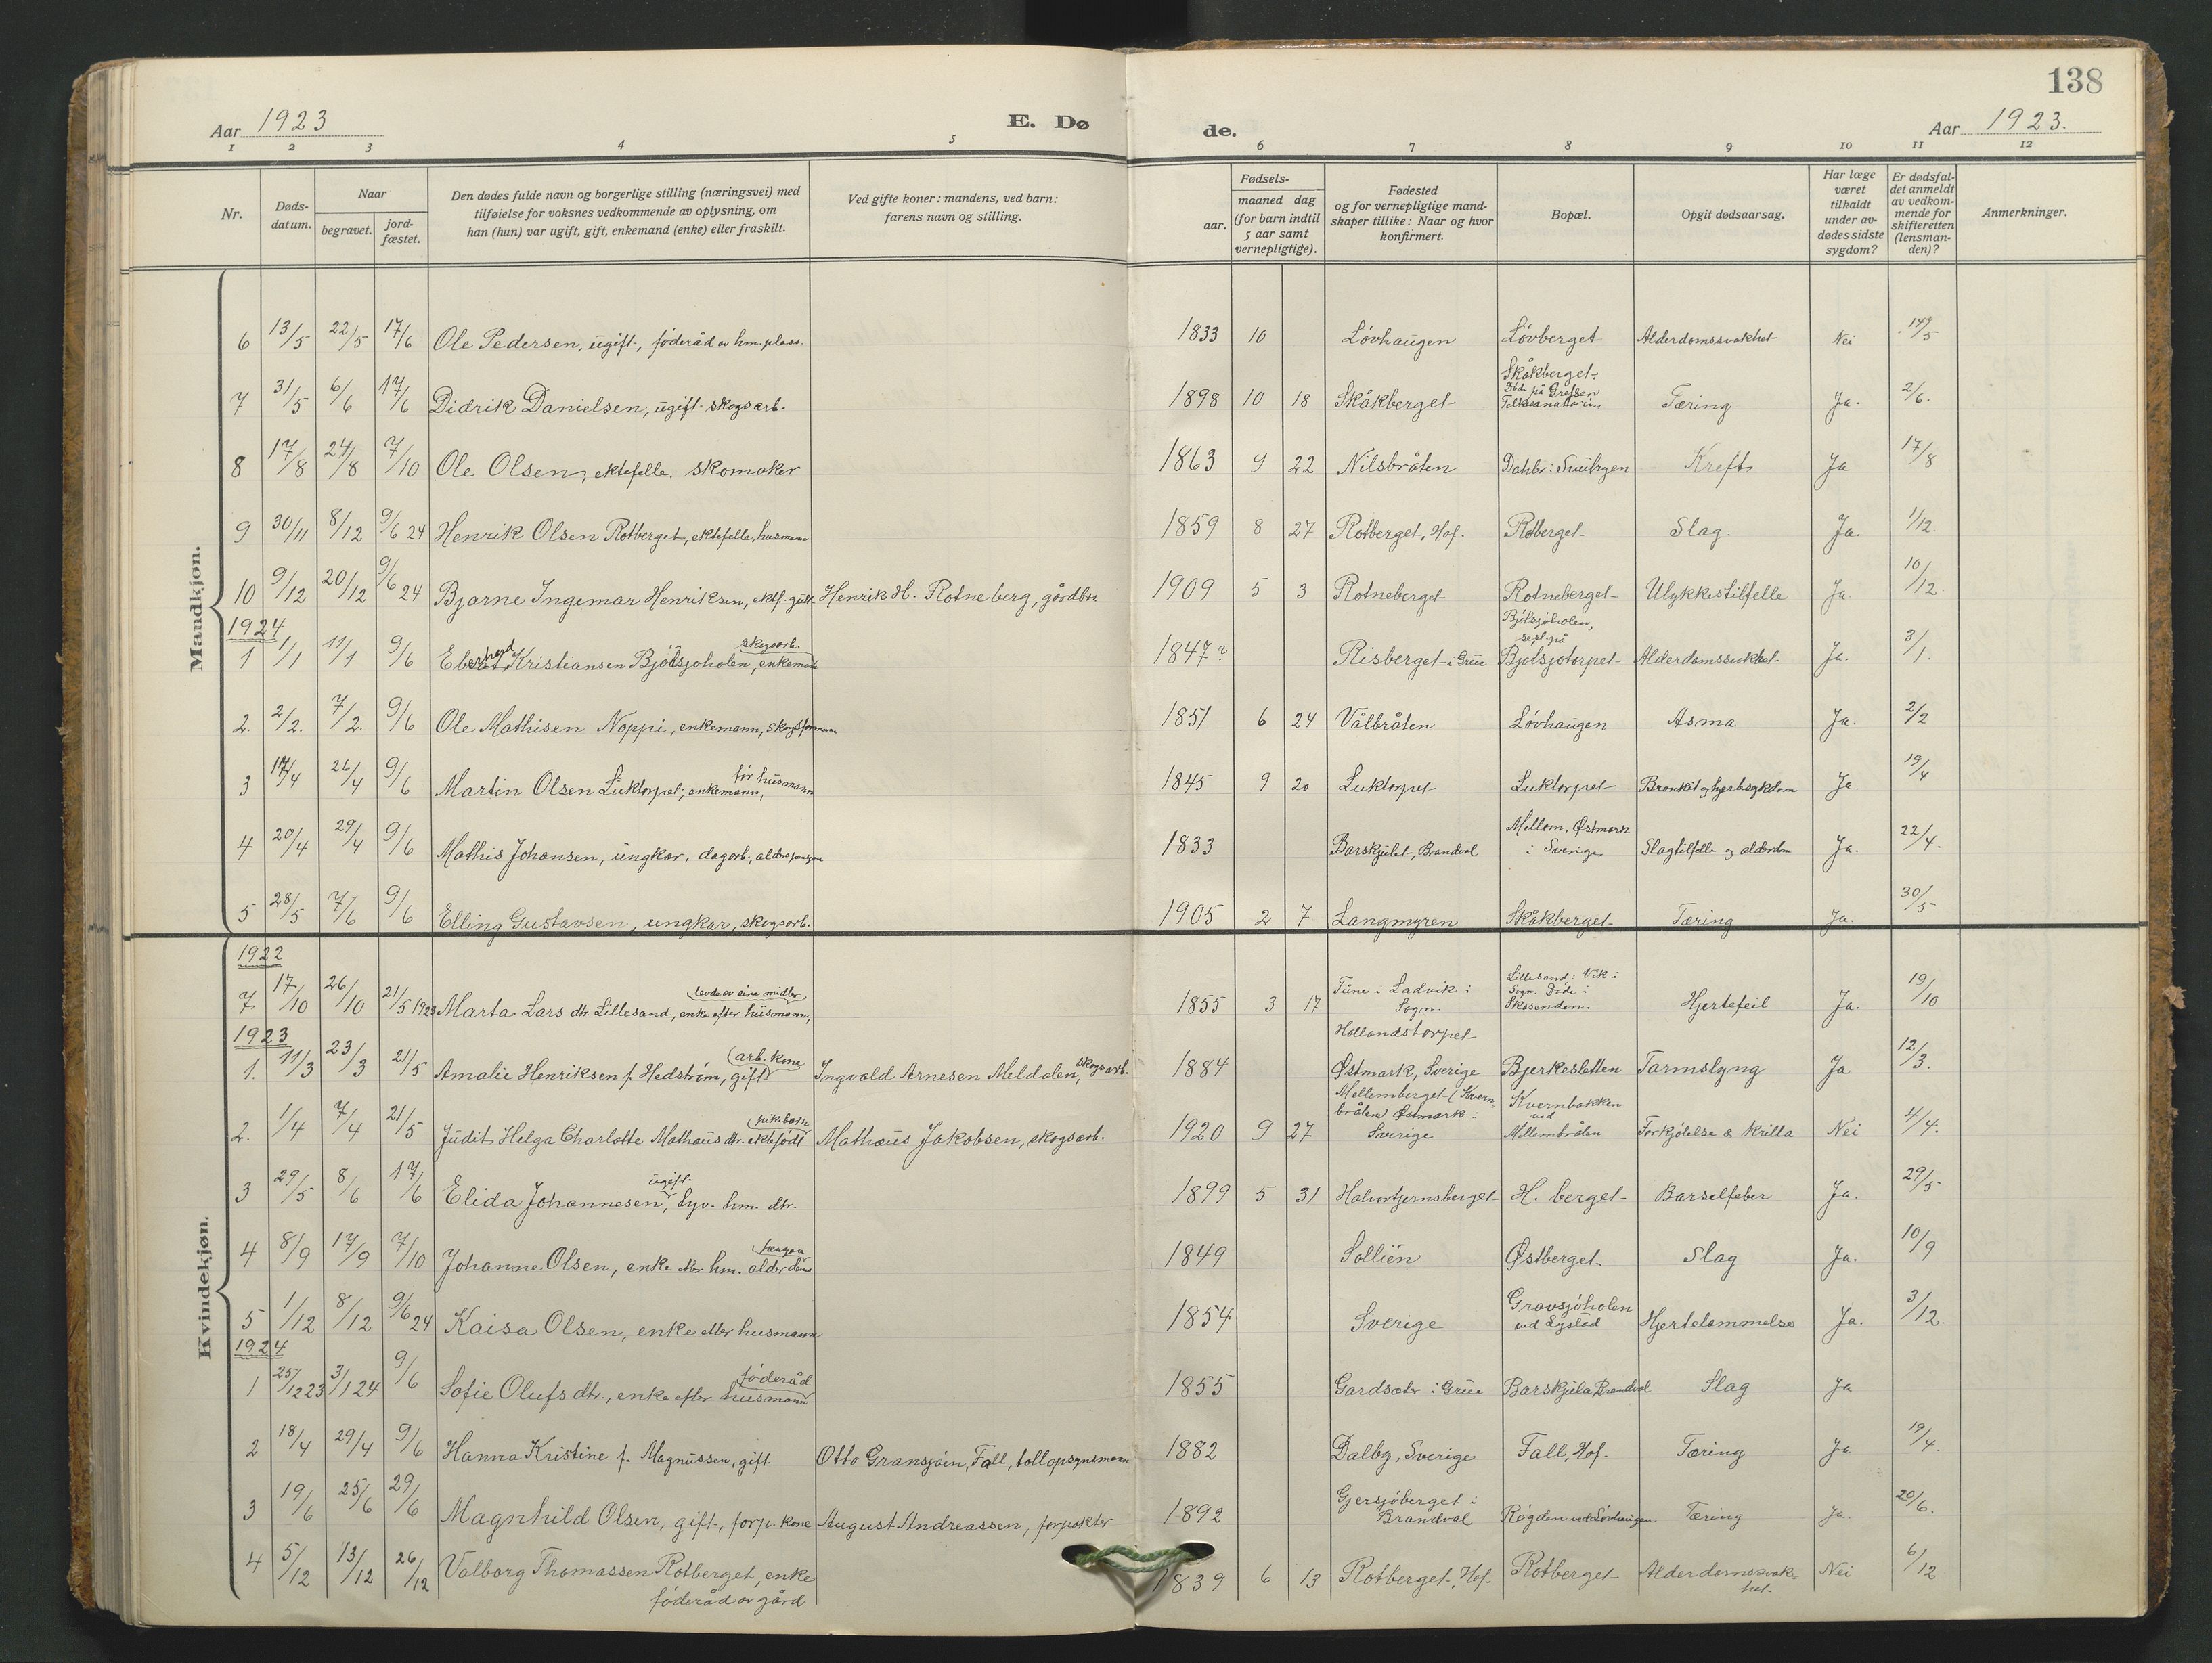 138
Aar 1923
E. Dø
de.
Aar 1923.
1 2 3 4 5 6 7 8 9 10 11 12
Nr.
Døds-
datum.
Naar
begravet.
jord-
fæstet.
Den dødes fulde navn og borgerlige stilling (næringsvei) med
tilføielse for voksnes vedkommende av oplysning, om
han (hun) var ugift, gift, enkemand (enke) eller fraskilt.
Ved gifte koner: mandens, ved barn:
farens navn og stilling.
Fødsels-
aar.
maaned dag
(for barn indtil
5 aar samt
vernepligtige).
Fødested
og for vernepligtige mand-
skaper tillike: Naar og hvor
konfirmert.
Bopæl.
Opgit dødsaarsag.
Har læge
været
tilkaldt
under av-
dødes sidste
sygdom?
Er dødsfal-
det anmeldt
av vedkom-
mende for
skifteretten
(lensman-
den)?
Anmerkninger.
Mandkjøn.
6 13/5 22/5 17/6 Ole Pedersen, ugift, føderåd av hm.plass. 1833 10 Løvhaugen Løvberget Alderdomssvakhet Nei 14/5
7 31/5 6/6 17/6 Didrik Danielsen, ugift skogsarb. 1898 10 18 Skåkberget Skåkberget: Døde på Grefsen Tæring Ja. 2/6.
8 17/8 24/8 7/10 Ole Olsen, ektefelle. skomaker 1863 9 22 Nilsbråten Dahlbr: Svullryen Kreft Ja 17/8
9 30/11 8/12 9/6 24 Henrik Olsen Rotberget, ektefelle, husmann 1859 8 27 Rotberget, Hof. Rotberget Slag. Ja. 1/12.
10 9/12 20/12 9/6 24 Bjarne Ingemar Henriksen, ektf. gutt. Henrik H. Rotneberg, gårdbr. 1909 5 3 Rotneberget Rotneberget Ulykkestilfelle Ja 10/12.
1924
1 1/1 11/1 9/6 Eberhard Kristiansen Bjølsjøholen, enkemann skogsarb. 1847? Risberget i Grue Bjølsjøholen, sist på Bjølsjøtorpet Alderdomssvakhet Ja. 3/1.
2. 2/2. 7/2. 9/6 Ole Mathisen Noppi, enkemann, skogsformann 1851 6 24 Vålbråten Løvhaugen Asma Ja. 2/2
3 17/4 26/4 9/6 Martin Olsen Luktorpet, enkemann, før husmann 1845 9 20 Luktorpet Luktorpet Bronkit og hjertesykdom Ja. 19/4
4 20/4 29/4 9/6 Mathis Johansen, ungkar, dagarb., alderspensjon 1833 Barskjulet, Brandval Mellom, Østmark i Sverige Slagtilfelle og alderdom Ja. 22/4.
5 28/5 7/6 9/6 Elling Gustavsen, ungkar, skogsarb. 1905 2 7 Langmyren Skåkberget Tæring Ja. 30/5
Kvindekjøn.
1922
7 17/10 26/10 21/5 1923 Marta Lars dtr. Lillesand, enke efter husmann, levde av eine midler 1855 3 17 Tune i Ladvik i Sogn. Lillesand: Vik i Sogn. Døde i Skasenden. Hjertefeil Ja. 19/10
1923
1. 11/3 23/3 21/5 Amalie Henriksen f. Hedstrøm, gift arb. kone Ingvald Arnesen Meldalen, skogsarb. 1884 Hollandstorpet Østmark, Sverige Bjerkesletten Tarmslyng Ja 12/3.
2. 1/4 7/4 21/5 Judit Helga Charlotte Mathæus dtr. ektefødt pikebarn Mathæus Jakobsen, skogsarb. 1920 9 27 Mellemberget (Kvernbråten) Østmark i Sverige Kvernbakken ved Mellembråten Forkjølelse & krilla Nei 4/4.
3 29/5 8/6 17/6 Elida Johannesen, ugift hm. dtr. 1899 5 31 Halvortjernsberget H. berget Barselfeber Ja. 29/5
4 8/9 17/9 7/10 Johanne Olsen, enke etter hm. alderdoms pensjon 1849 Sollien Østberget Slag Ja. 10/9
5 1/12 8/12 9/6 24 Kaisa Olsen, enke etter husmann 1854 Sverige Gravsjøholen ved Lystad Hjertelammelse Ja. 3/12.
1924
1 25/12 23 3/1 24 9/6 Sofie Olufs dtr., enke efter husmann føderåd 1855 Gardsæter i Grue Barskjula, Brandval Slag Ja
2 18/4 29/4 9/6 Hanna Kristine f. Magnussen, gift. Otto Gransjøen, Fall, tollopsynsmann 1882 Dalby, Sverige Fall, Hof. Tæring Ja 19/4.
3 19/6 25/6 29/6 Magnhild Olsen, gift, forp. kone August Andreassen, forpakter 1892 Gjersjøberget i Brandval Røgden ved Løvhaugen Tæring Ja. 20/6.
4 5/12 13/12 26/12 Valborg Thomassen Rotberget, enke føderåd av gård 1839 6 13 Rotberget, Hof. Rotberget Alderdomssvakhet Nei 6/12